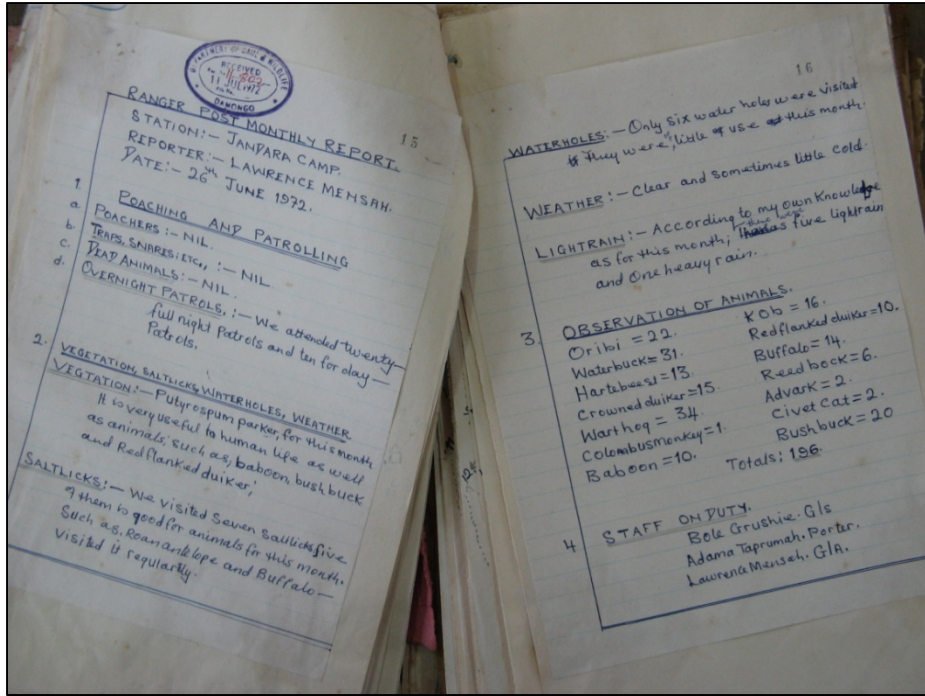 15
DEPARTMENT OF GAME & WILDLIFE
RECEIVED
11 JUL 1972
DAMONGO
RANGER POST MONTHLY REPORT.
STATION:- JANDARA CAMP.
REPORTER:- LAWRENCE MENSAH.
DATE:- 26th JUNE 1972.
1. POACHING AND PATROLLING
a POACHERS:- NIL.
b. TRAPS, SNARES; ETC, :- NIL.
c. DEAD ANIMALS:- NIL.
d. OVERNIGHT PATROLS, :- We attended twenty-
full night Patrols and ten for day-
Patrols.
2. VEGETATION, SALTLICKS, WATERHOLES, WEATHER
VEGTATION:- Putyrospum parker, for this month
It is very useful to human life as well
as animals such as, baboon, bush buck
and Red flanked duiker;
SALTLICKS:- We visited Seven saltlicks five
of them is good for animals for this month.
Such as, Roan antelope and Buffalo-
visited it regulartly.
16
WATERHOLES:- Only six water holes were visited
They were little of use this month.
WEATHER:- Clear and sometimes little cold.
LIGHTRAIN:- According to my own Knowledge
as for this month; there was five lightrain
and One heavy rain.
3. OBSERVATION OF ANIMALS.
Oribi = 22. KOb = 16.
Waterbuck = 31. Redflanked duiker = 10.
Hartebeest = 13. Buffalo = 14.
Crowned duiker = 15. Reed bock = 6.
Warthog = 34. Advark = 2.
Colombusmonkey = 1. Civet Cat = 2.
Baboon = 10. Bushbuck = 20
Totals: 196.
4 STAFF ON DUTY.
Bole Grushie. G/s
Adama Taprumah. Porter.
Lawrence Mensah. G/A.